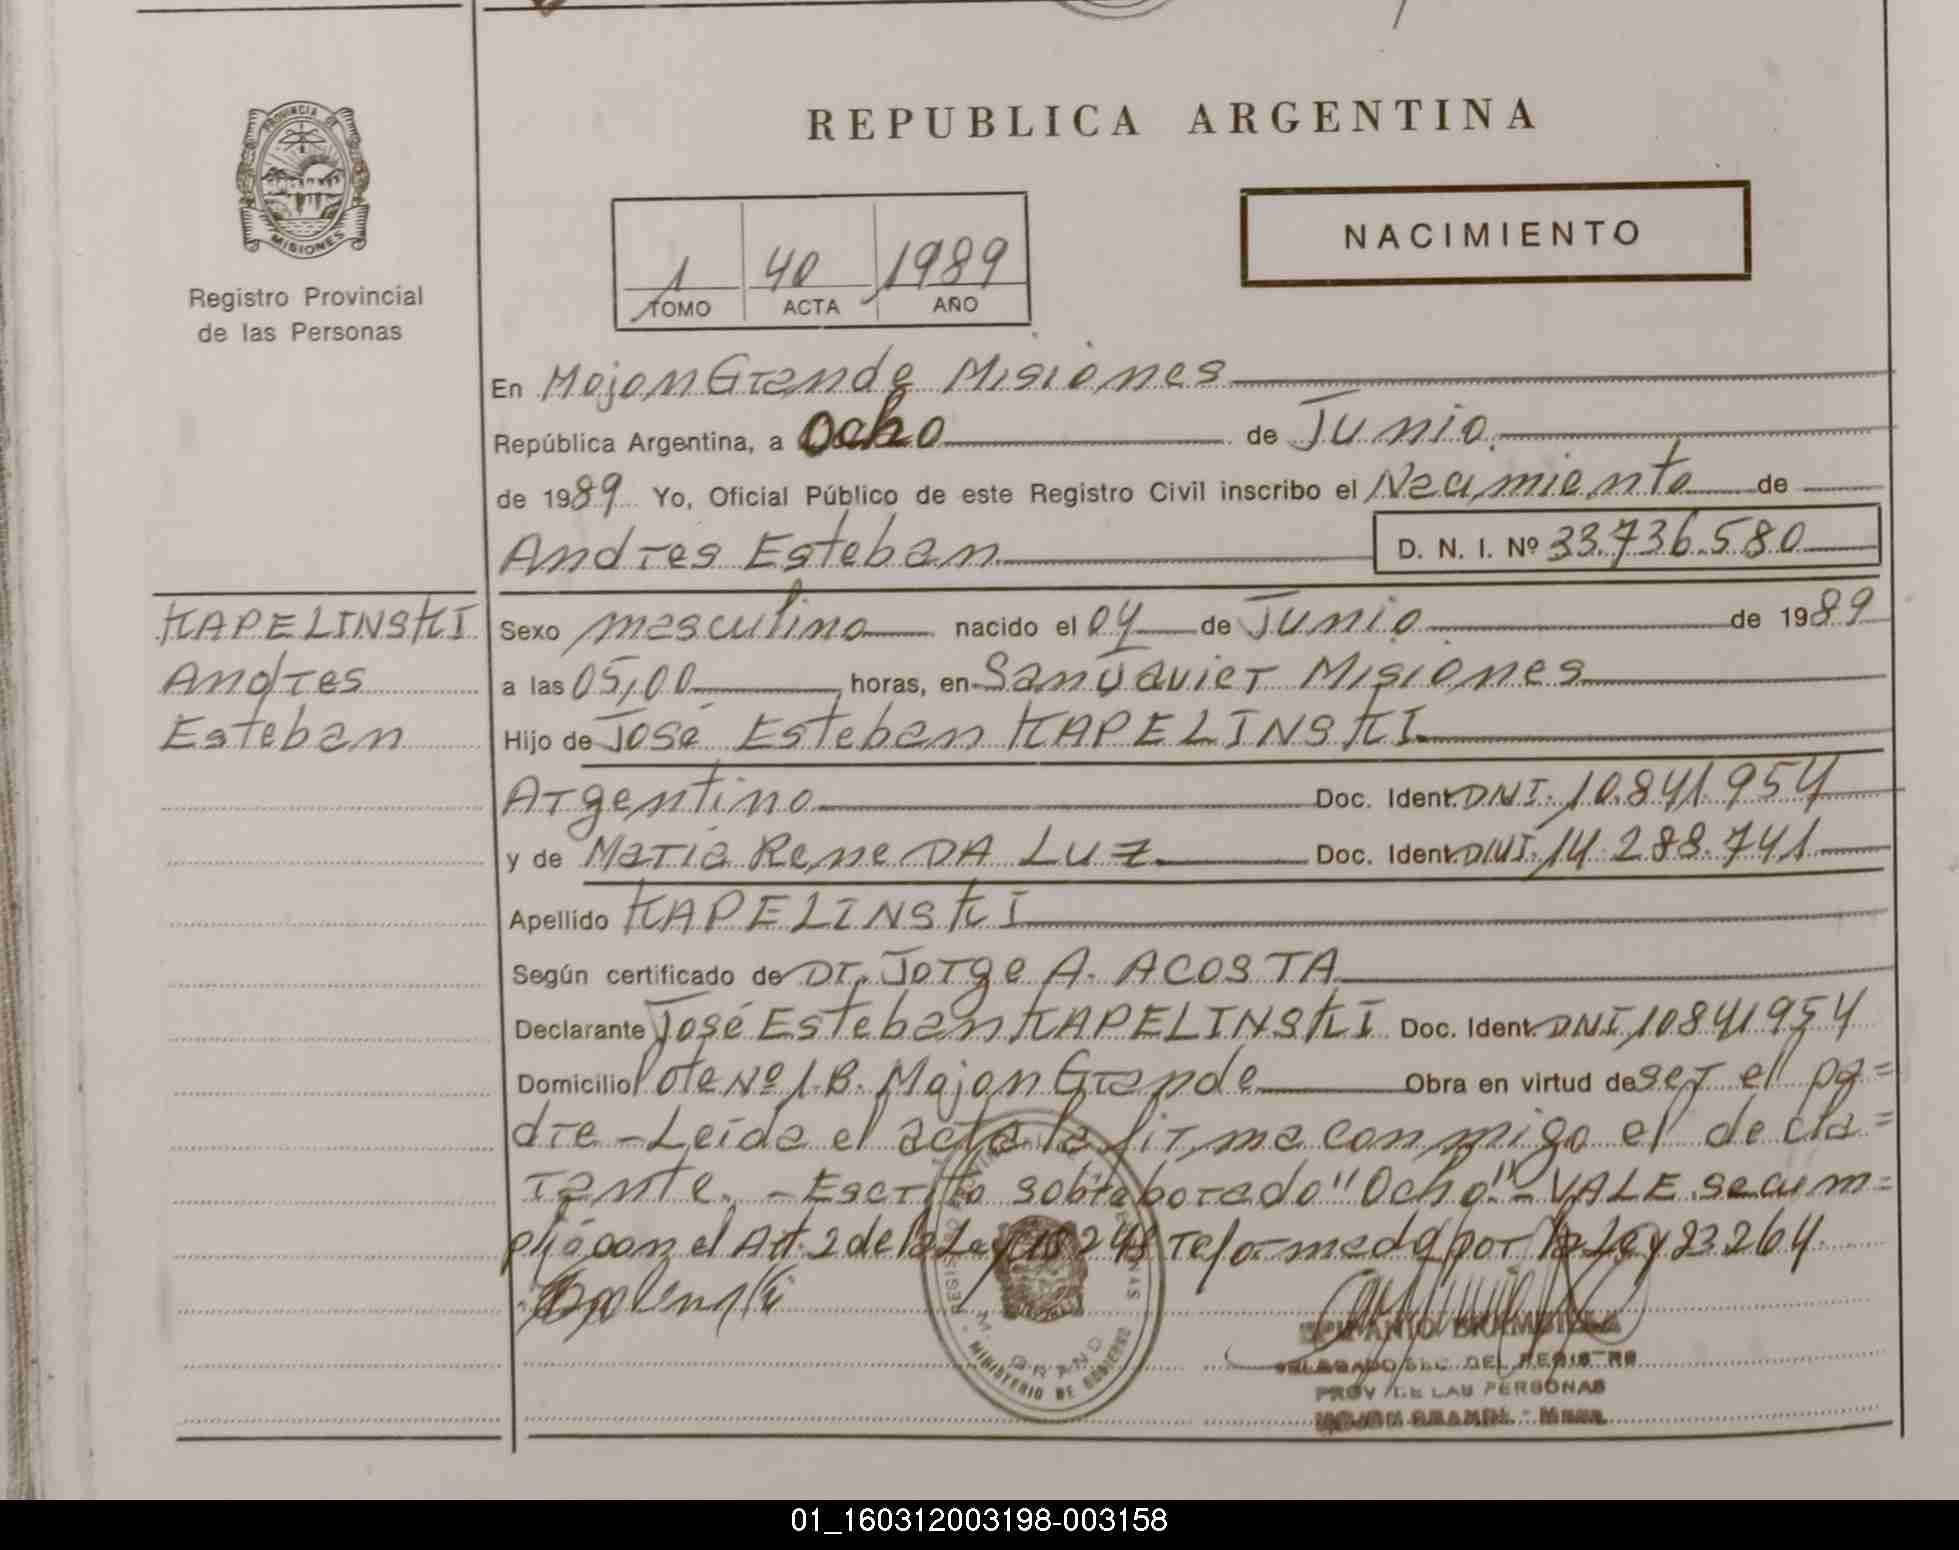 PROVINCIA DE
MISIONES
Registro Provincial
de las Personas
REPUBLICA ARGENTINA
1 40 1989
TOMO ACTA AÑO
NACIMIENTO
En Mojon Grande Misiones
República Argentina, a Ocho de Junio
de 1989 Yo, Oficial Público de este Registro Civil inscribo el Nacimiento de
Andres Esteban D. N. I. Nº 33.736.580
KAPELINSKI
Andres
Esteban
Sexo masculino nacido el 04 de Junio de 1989
a las 05,00 horas, en San Javier Misiones
Hijo de José Esteban KAPELINSKI
Argentino Doc. Ident. DNI. 10.841.954
y de Maria Rene DA LUZ Doc. Ident. DNI. 14.288.741
Apellido KAPELINSKI
Según certificado de Dr. Jorge A. ACOSTA
Declarante José Esteban KAPELINSKI Doc. Ident. DNI 10841954
Domicilio lote Nº 1 B. Mojon Grande Obra en virtud de ser el pa=
dre - Leida el acta la firma conmigo el decla=
rante. - Escrito sobreborrado "Ocho" - VALE. se cum=
plió con el Art. 2 de la Ley 18248 reformada por la Ley 23.264.
MINISTERIO DE GOBIERNO
DELEGADO SEC. DEL REGISTRO
PROV. DE LAS PERSONAS
MOJON GRANDE - Mnes.
01_160312003198-003158